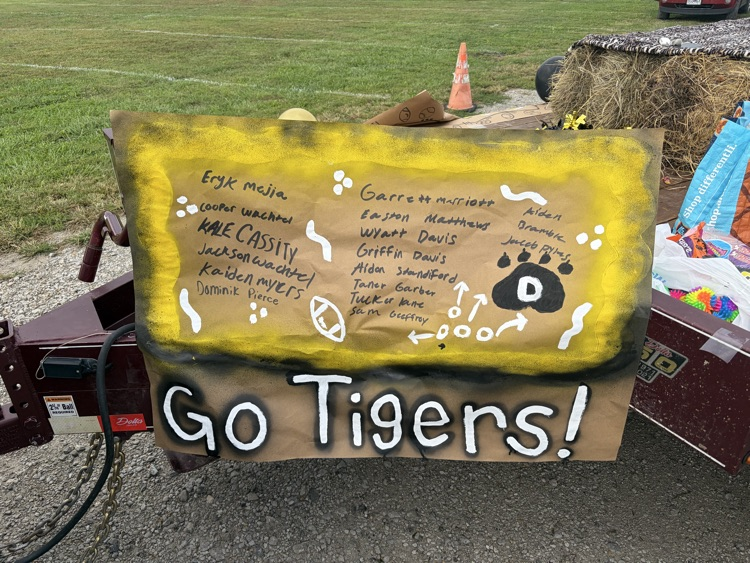 Eryk Mejia
Cooper Wachtel
KALE CASSITY
Jackson Wachtel
Kaiden Myers
Dominik Pierce
Garrett Marriott
Easton Matthews
Wyatt Davis
Griffin Davis
Aidan Standiford
Taner Garber
Tucker Kane
Sam Geoffroy
Aiden
Bramble
Jacob Pyles
D
Go Tigers!
Shop differentli.
WARNING
2 5/16" Ball
REQUIRED
Delta